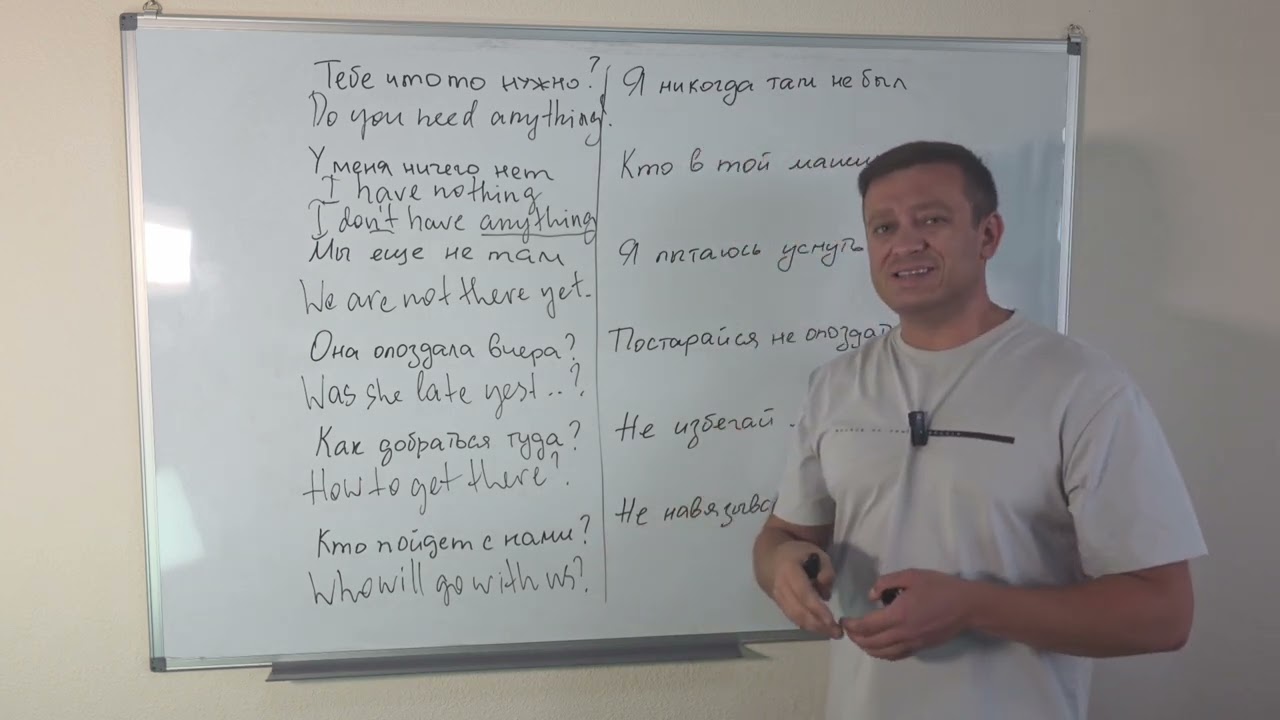 Тебе что то нужно?
Do you need anything.
У меня ничего нет
I have nothing
I don't have anything
Мы еще не там
We are not there yet.
Она опоздала вчера?
Was she late yest...?
Как добраться туда?
How to get there?
Кто пойдет с нами?
Who will go with us?
Я никогда там не был
Кто в той
Я пытаюсь уснуть
Постарайся не
Не избегай
Не